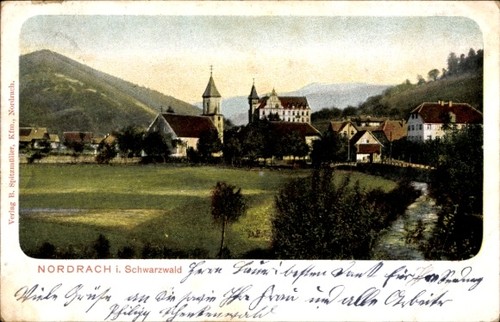 Verlag B. Spitzmüller, Kfm., Nordrach.
NORDRACH i. Schwarzwald
Herrn besten Dank für Sendung
Viele Grüße an Sie sowie Ihre Frau und alle Arbeiter
Philipp